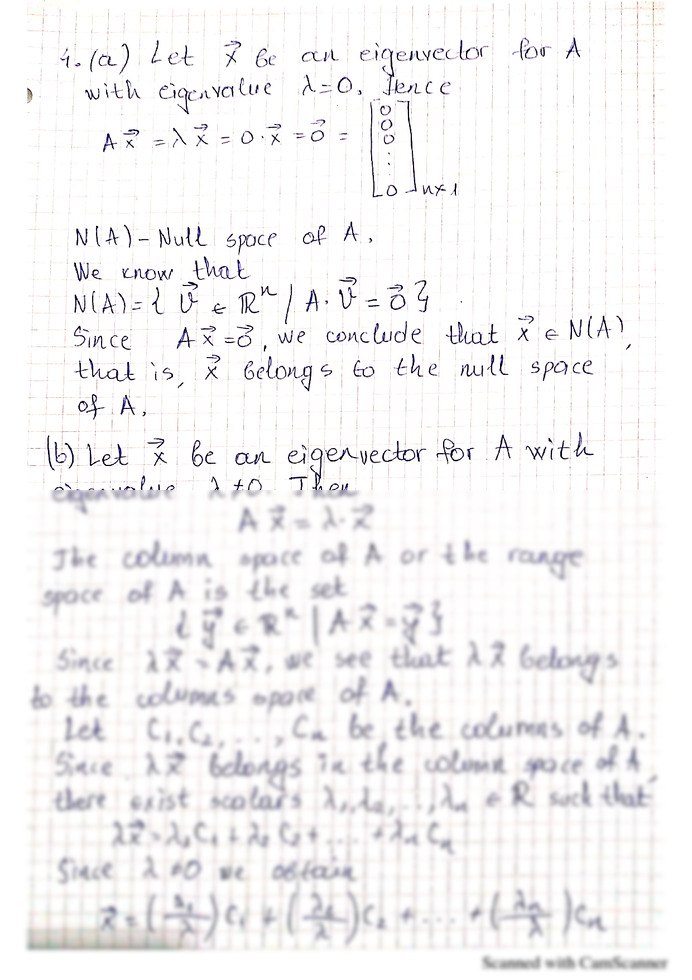 4. (a) Let x⃗ be an eigenvector for A
with eigenvalue λ=0. Hence
A x⃗ = λ x⃗ = 0 · x⃗ = 0⃗ = [0 0 0 ⋮ 0] n×1
N(A) – Null space of A.
We know that
N(A) = { v⃗ ∈ ℝⁿ / A · v⃗ = 0⃗ }.
Since A x⃗ = 0⃗, we conclude that x⃗ ∈ N(A),
that is, x⃗ belongs to the null space
of A.
(b) Let x⃗ be an eigenvector for A with
eigenvalue λ ≠ 0. Then
A x⃗ = λ · x⃗
The column space of A or the range
space of A is the set
{ y⃗ ∈ ℝⁿ | A x⃗ = y⃗ }
Since λ x⃗ = A x⃗, we see that λ x⃗ belongs
to the columns space of A.
Let C₁, C₂, ..., Cₙ be the columns of A.
Since λ x⃗ belongs in the column space of A,
there exist scalars λ₁, λ₂, ..., λₙ ∈ ℝ such that
λ x⃗ = λ₁ C₁ + λ₂ C₂ + ... + λₙ Cₙ
Since λ ≠ 0 we obtain
x⃗ = (λ₁/λ) C₁ + (λ₂/λ) C₂ + ... + (λₙ/λ) Cₙ
Scanned with CamScanner